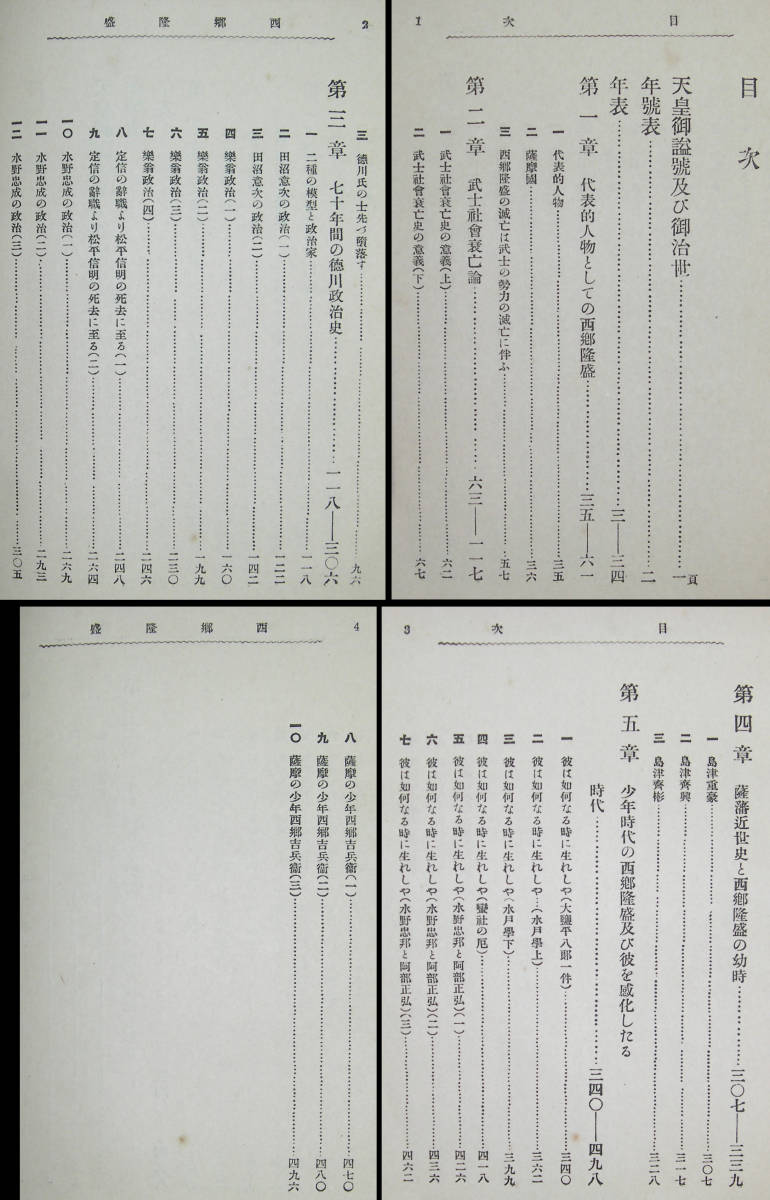 目次 1
目次
天皇御諡號及び御治世……一頁
年號表……二
年表……三—三四
第一章 代表的人物としての西鄕隆盛……三五—六一
一 代表的人物……三五
二 薩摩國……三六
三 西鄕隆盛の滅亡は武士の勢力の滅亡に伴ふ……五七
第二章 武士社會衰亡論……六三—一一七
一 武士社會衰亡史の意義(上)……六二
二 武士社會衰亡史の意義(下)……六七
西鄕隆盛 2
三 德川氏の士先づ墮落す……九六
第三章 七十年間の德川政治史……一一八—三〇六
一 二種の模型と政治家……一一八
二 田沼意次の政治(一)……一二二
三 田沼意次の政治(二)……一四二
四 樂翁政治(一)……一六〇
五 樂翁政治(二)……一九九
六 樂翁政治(三)……二三〇
七 樂翁政治(四)……二四六
八 定信の辭職より松平信明の死去に至る(一)……二四八
九 定信の辭職より松平信明の死去に至る(二)……二六四
一〇 水野忠成の政治(一)……二六九
一一 水野忠成の政治(二)……二九三
一二 水野忠成の政治(三)……三〇五
目次 3
第四章 薩藩近世史と西鄕隆盛の幼時……三〇七—三三九
一 島津重豪……三〇七
二 島津齊興……三一七
三 島津齊彬……三二八
第五章 少年時代の西鄕隆盛及び彼を感化したる
時代……三四〇—四九八
一 彼は如何なる時に生れしや(大鹽平八郞一件)……三四〇
二 彼は如何なる時に生れしや…(水戶學上)……三六二
三 彼は如何なる時に生れしや(水戶學下)……三九九
四 彼は如何なる時に生れしや(蠻社の厄)……四一八
五 彼は如何なる時に生れしや(水野忠邦と阿部正弘)(一)……四二六
六 彼は如何なる時に生れしや(水野忠邦と阿部正弘)(二)……四三六
七 彼は如何なる時に生れしや(水野忠邦と阿部正弘)(三)……四六二
西鄕隆盛 4
八 薩摩の少年西鄕吉兵衞(一)……四七〇
九 薩摩の少年西鄕吉兵衞(二)……四八〇
一〇 薩摩の少年西鄕吉兵衞(三)……四九六